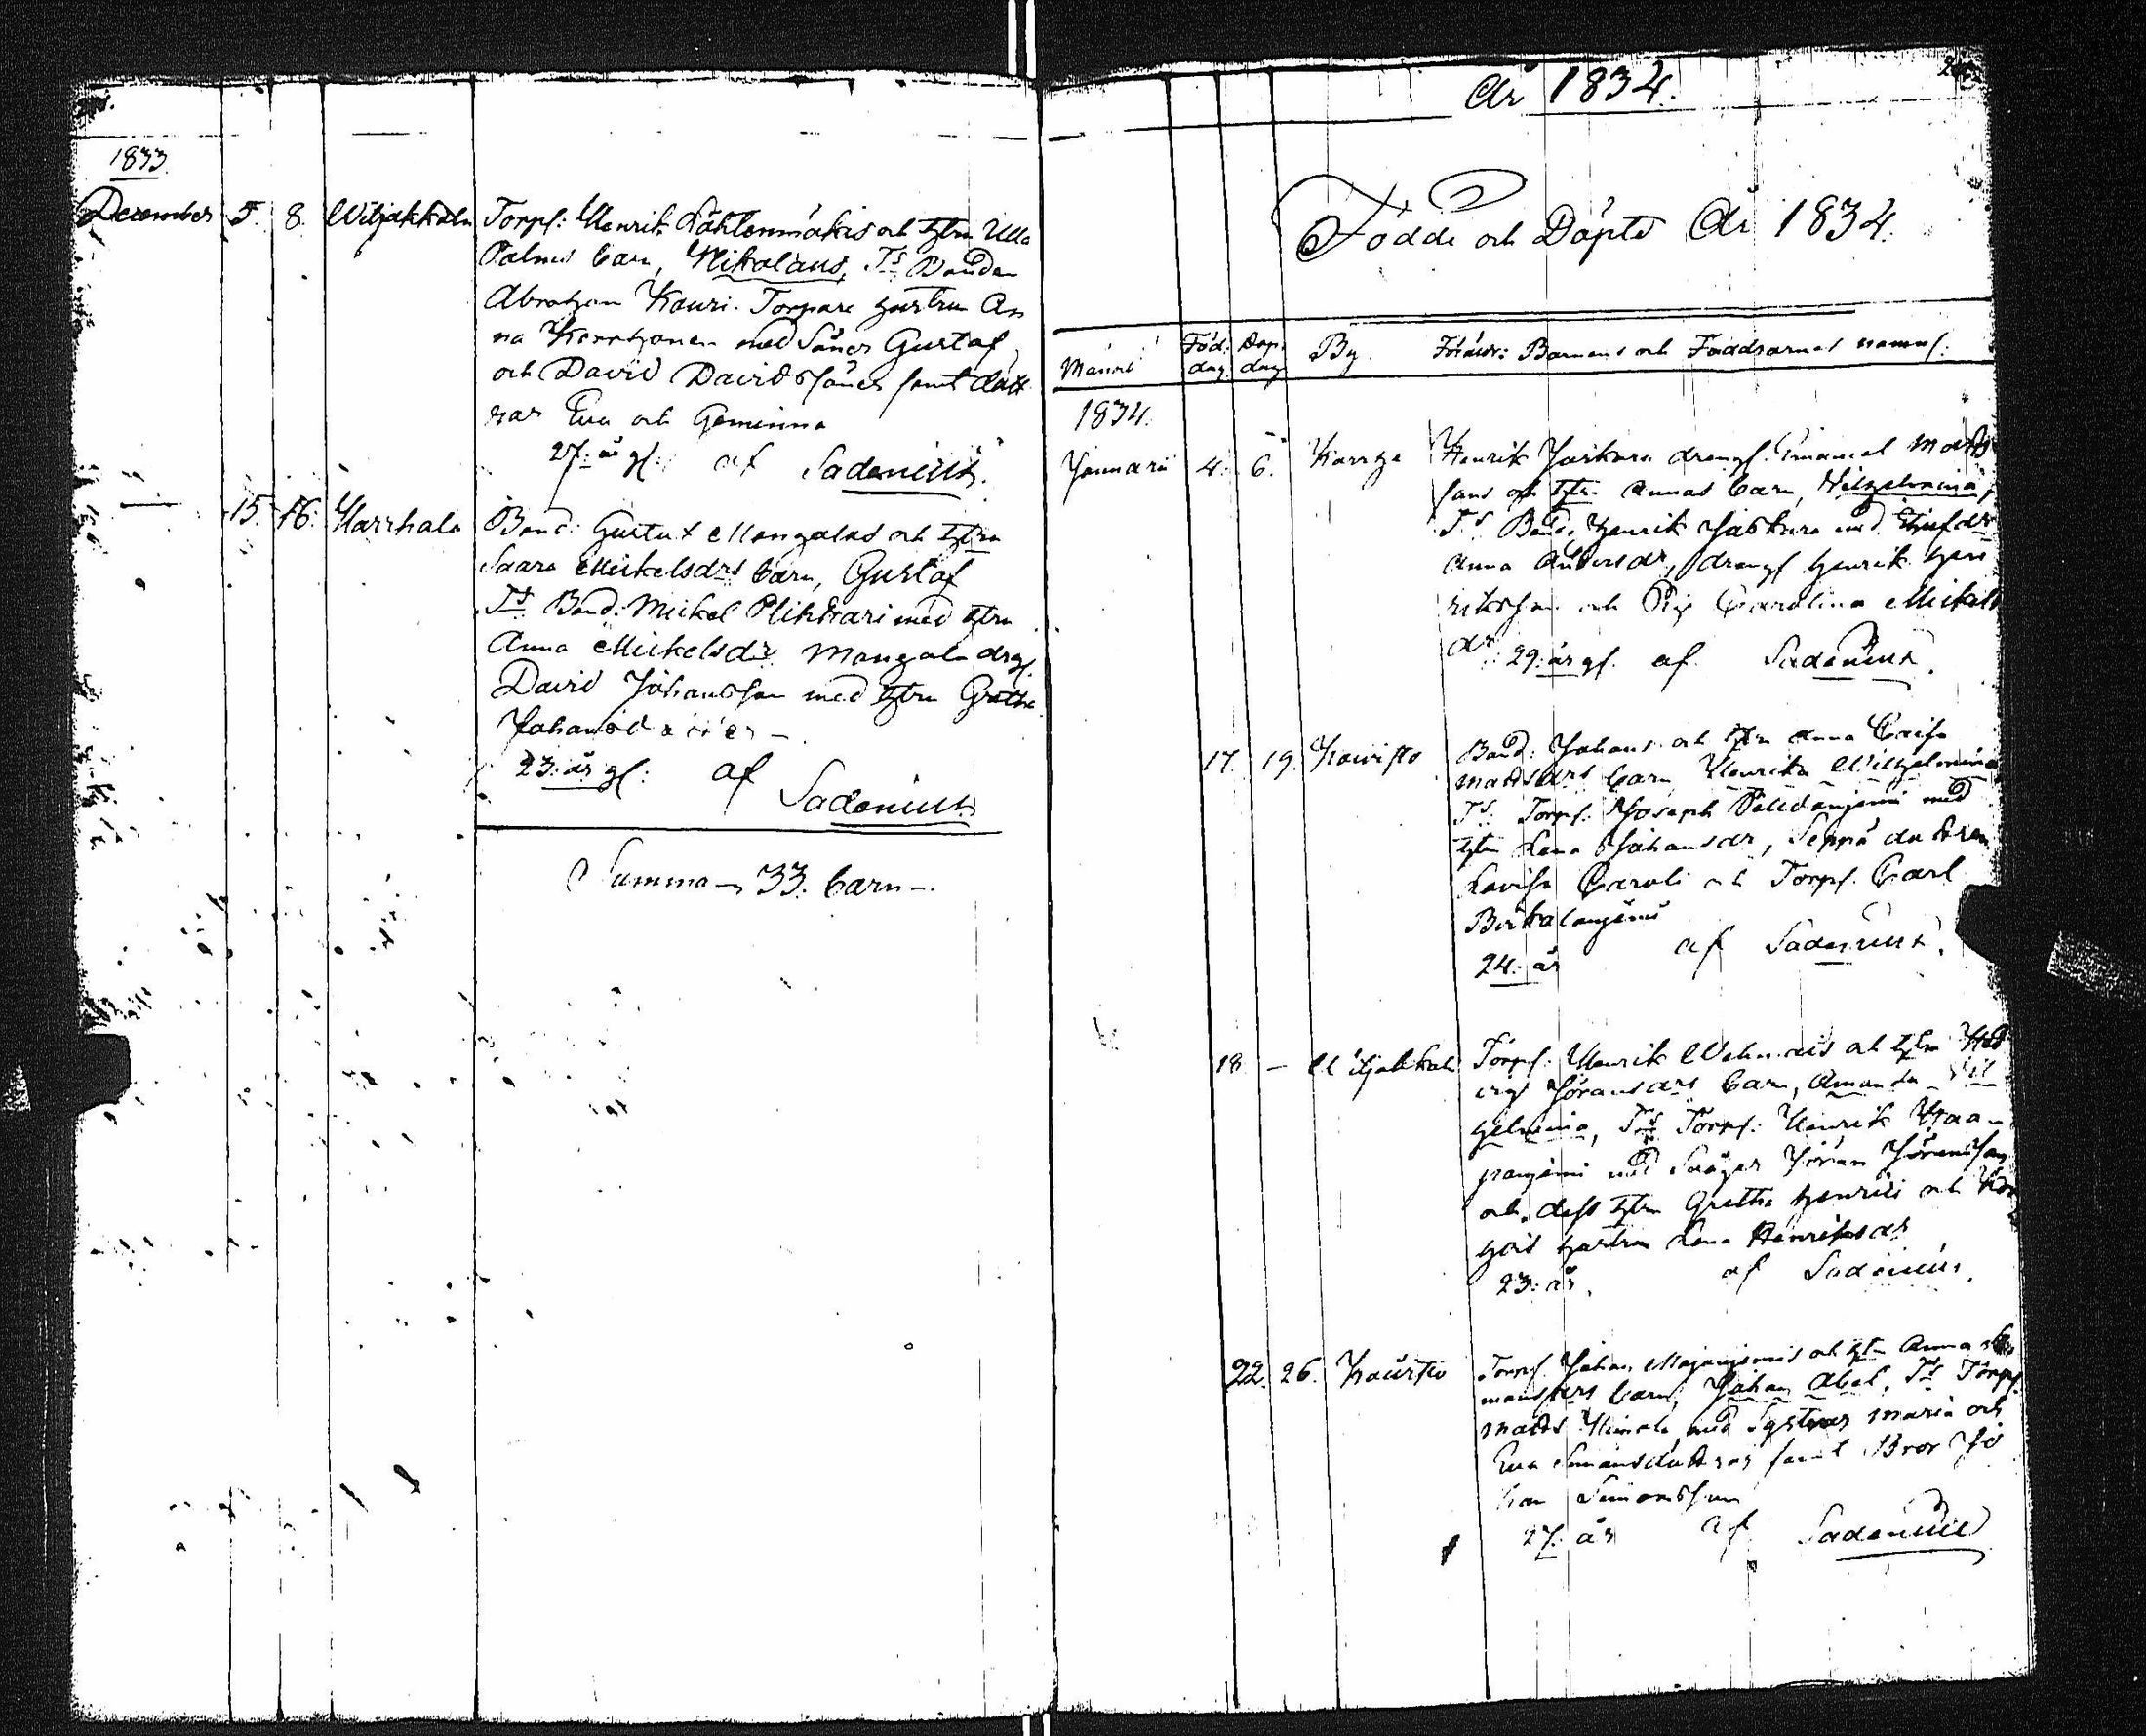 1833.
December 5. 8. Wiljakkala Torpf: Henrik Lähtenmäkis och hstru Ulla
Palmes barn, Nikolaus, Ts Bonden
Abraham Kauri. Torpare hustrun An
na Karrhonen med Söner Gustaf
och David Davidssöner samt dött
rar Eva och Gemina
27. år gl: af Sadenius.
15. 16. Harrhala Bond: Gustaf Mangalas och hstru
Saara Mickelsdrs barn, Gustaf
Ts Bond: Mickel Plihtari med hstru
Anna Mickelsdr. Mangala drgf.
David Johansson med hstru Gretha
Johansd
23. år gl: af
Sadenius
Summa 33. barn.
År 1834.
Födde och Döpte År 1834.
Månad Föd. dag Döp. dag By Föräldr: Barnens och Faddrarnes namn.
1834.
Januarii 4. 6. Karrhe Henrik Jaskara drengf. Emanuel Matts
sons och hstr. Annas barn, Wilhelmina,
Ts Bond. Henrik Jaskara med
Anna Andersdr, drengf Henrik Hen
riksson och Pig. Carolina Mickels
dr. 29. år gl. af Sadenius.
17. 19. Kowisto Bond: Johans och hstru Anna Caisa
Mattsdrs barn Henrika Wilhelmina
Ts: Torpf: Joseph med
hstru Lena Johansdr, Seppä dottren
Lovisa Caroli och Torpf. Carl
24. år af Sadenius.
18. — Wiljakkala Torpf: Henrik och hstru Hed
vig Jöransdrs barn, Amanda Wil
helmina, Ts Torpf: Henrik Haa
paniemi med Jöran Jöransson
och dess hstru Gretha Henrici och
hustrun Lena Henriksdr
23. år. af Sadenius.
22. 26. Kowisto Torpf. Johan Majaniemis och hstru Anna
barn, Johan Abel, Ts Torpf.
Matts med Systrar Maria och
Eva Simonsdöttrar samt Bror Jo
han Simonsson
27. år af Sadenius